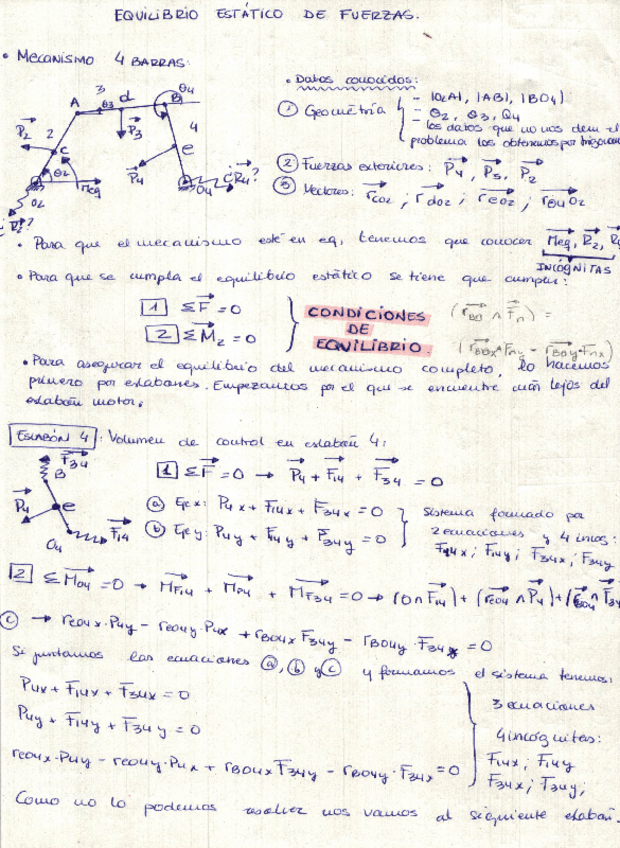 EQUILIBRIO ESTÁTICO DE FUERZAS.
• MECANISMO 4 BARRAS:
• Datos conocidos:
① Geometría
- |O2A|, |AB|, |BO4|
- θ2, θ3, θ4
los datos que no nos dem el
problema los obtenemos por
② Fuerzas exteriores: P4, P3, P2
③ Vectores: rCO2; rdO2; reO2; rO4O2
A 3 θ3 d B θ4
2 P3 4
P2 C e
θ2 P4
O2 Meq O4 R4?
R2?
• Para que el mecanismo esté en eq, tenemos que conocer Meq, R2, R
INCÓGNITAS
• Para que se cumpla el equilibrio estático se tiene que cumplir:
1 ΣF = 0
2 ΣM2 = 0
CONDICIONES
DE
EQUILIBRIO.
• Para asegurar el equilibrio del mecanismo completo, lo hacemos
primero por eslabones. Empezamos por el que se encuentre más lejos del
eslabón motor.
ESLABÓN 4: Volumen de control en eslabón 4:
F34
B
P4 e
O4 F14
1 ΣF = 0 → P4 + F14 + F34 = 0
ⓐ Eje x: P4x + F14x + F34x = 0
ⓑ Eje y: P4y + F14y + F34y = 0
Sistema formado por
2 ecuaciones y 4 incog:
F14x; F14y; F34x; F34y
2 ΣMO4 = 0 → MF14 + MP4 + MF34 = 0 → (0∧F14) + (reO4∧P4) + (rBO4∧F34
ⓒ → reO4x·P4y - reO4y·P4x + rBO4x F34y - rBO4y·F34x = 0
Si juntamos las ecuaciones ⓐ, ⓑ y ⓒ y formamos el sistema tenemos:
P4x + F14x + F34x = 0
P4y + F14y + F34y = 0
reO4x·P4y - reO4y·P4x + rBO4x F34y - rBO4y·F34x = 0
3 ecuaciones
4 incógnitas:
F14x; F14y
F34x; F34y;
Como no lo podemos resolver nos vamos al siguiente eslabón.